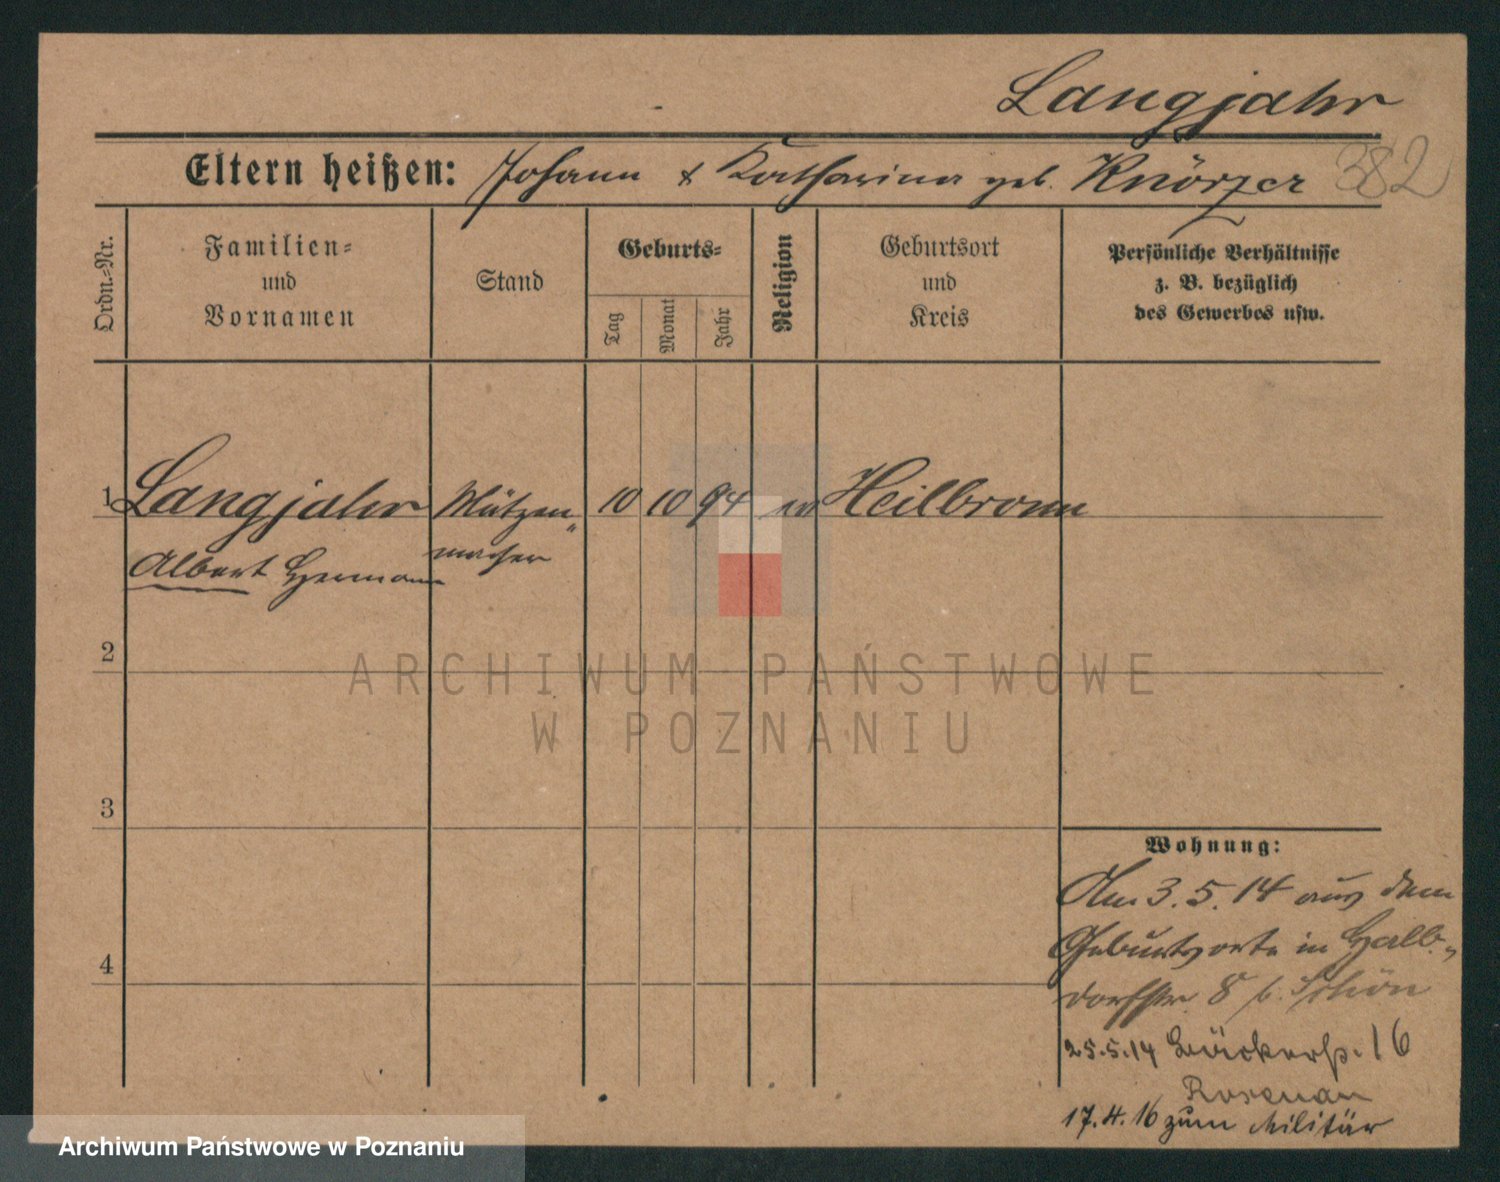 Langjahr
382
Eltern heißen: Johann & Katharina geb. Knörzer
Ordn.-Nr.
Familien-
und
Vornamen
Stand
Geburts-
Tag
Monat
Jahr
Religion
Geburtsort
und
Kreis
Persönliche Verhältnisse
z. B. bezüglich
des Gewerbes usw.
1 Langjahr Mützen- 10 10 94 ev Heilbronn
Albert Hermann macher
2
3
4
Wohnung:
Am 3.5.14 aus dem
Geburtsorte in Halb-
dorfstr. 8 b. Schön
25.5.14 Bäckerstr. 16
Rosenau
17.4.16 zum Militär
ARCHIWUM PAŃSTWOWE
W POZNANIU
Archiwum Państwowe w Poznaniu